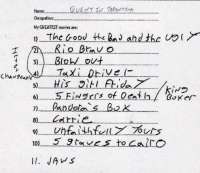 Name: QUENTIN TARANTINO
Occupation:
My GREATEST movies are:
1) The Good the Bad and the UGLY
2) Rio Bravo
3) Blow out
4) Taxi Driver
5) His girl Friday
6) 5 Fingers of Death / King Boxer
7) Pandora's Box
8) Carrie
9) unfaithfully Yours
10) 5 graves to Cairo
11. JAWS